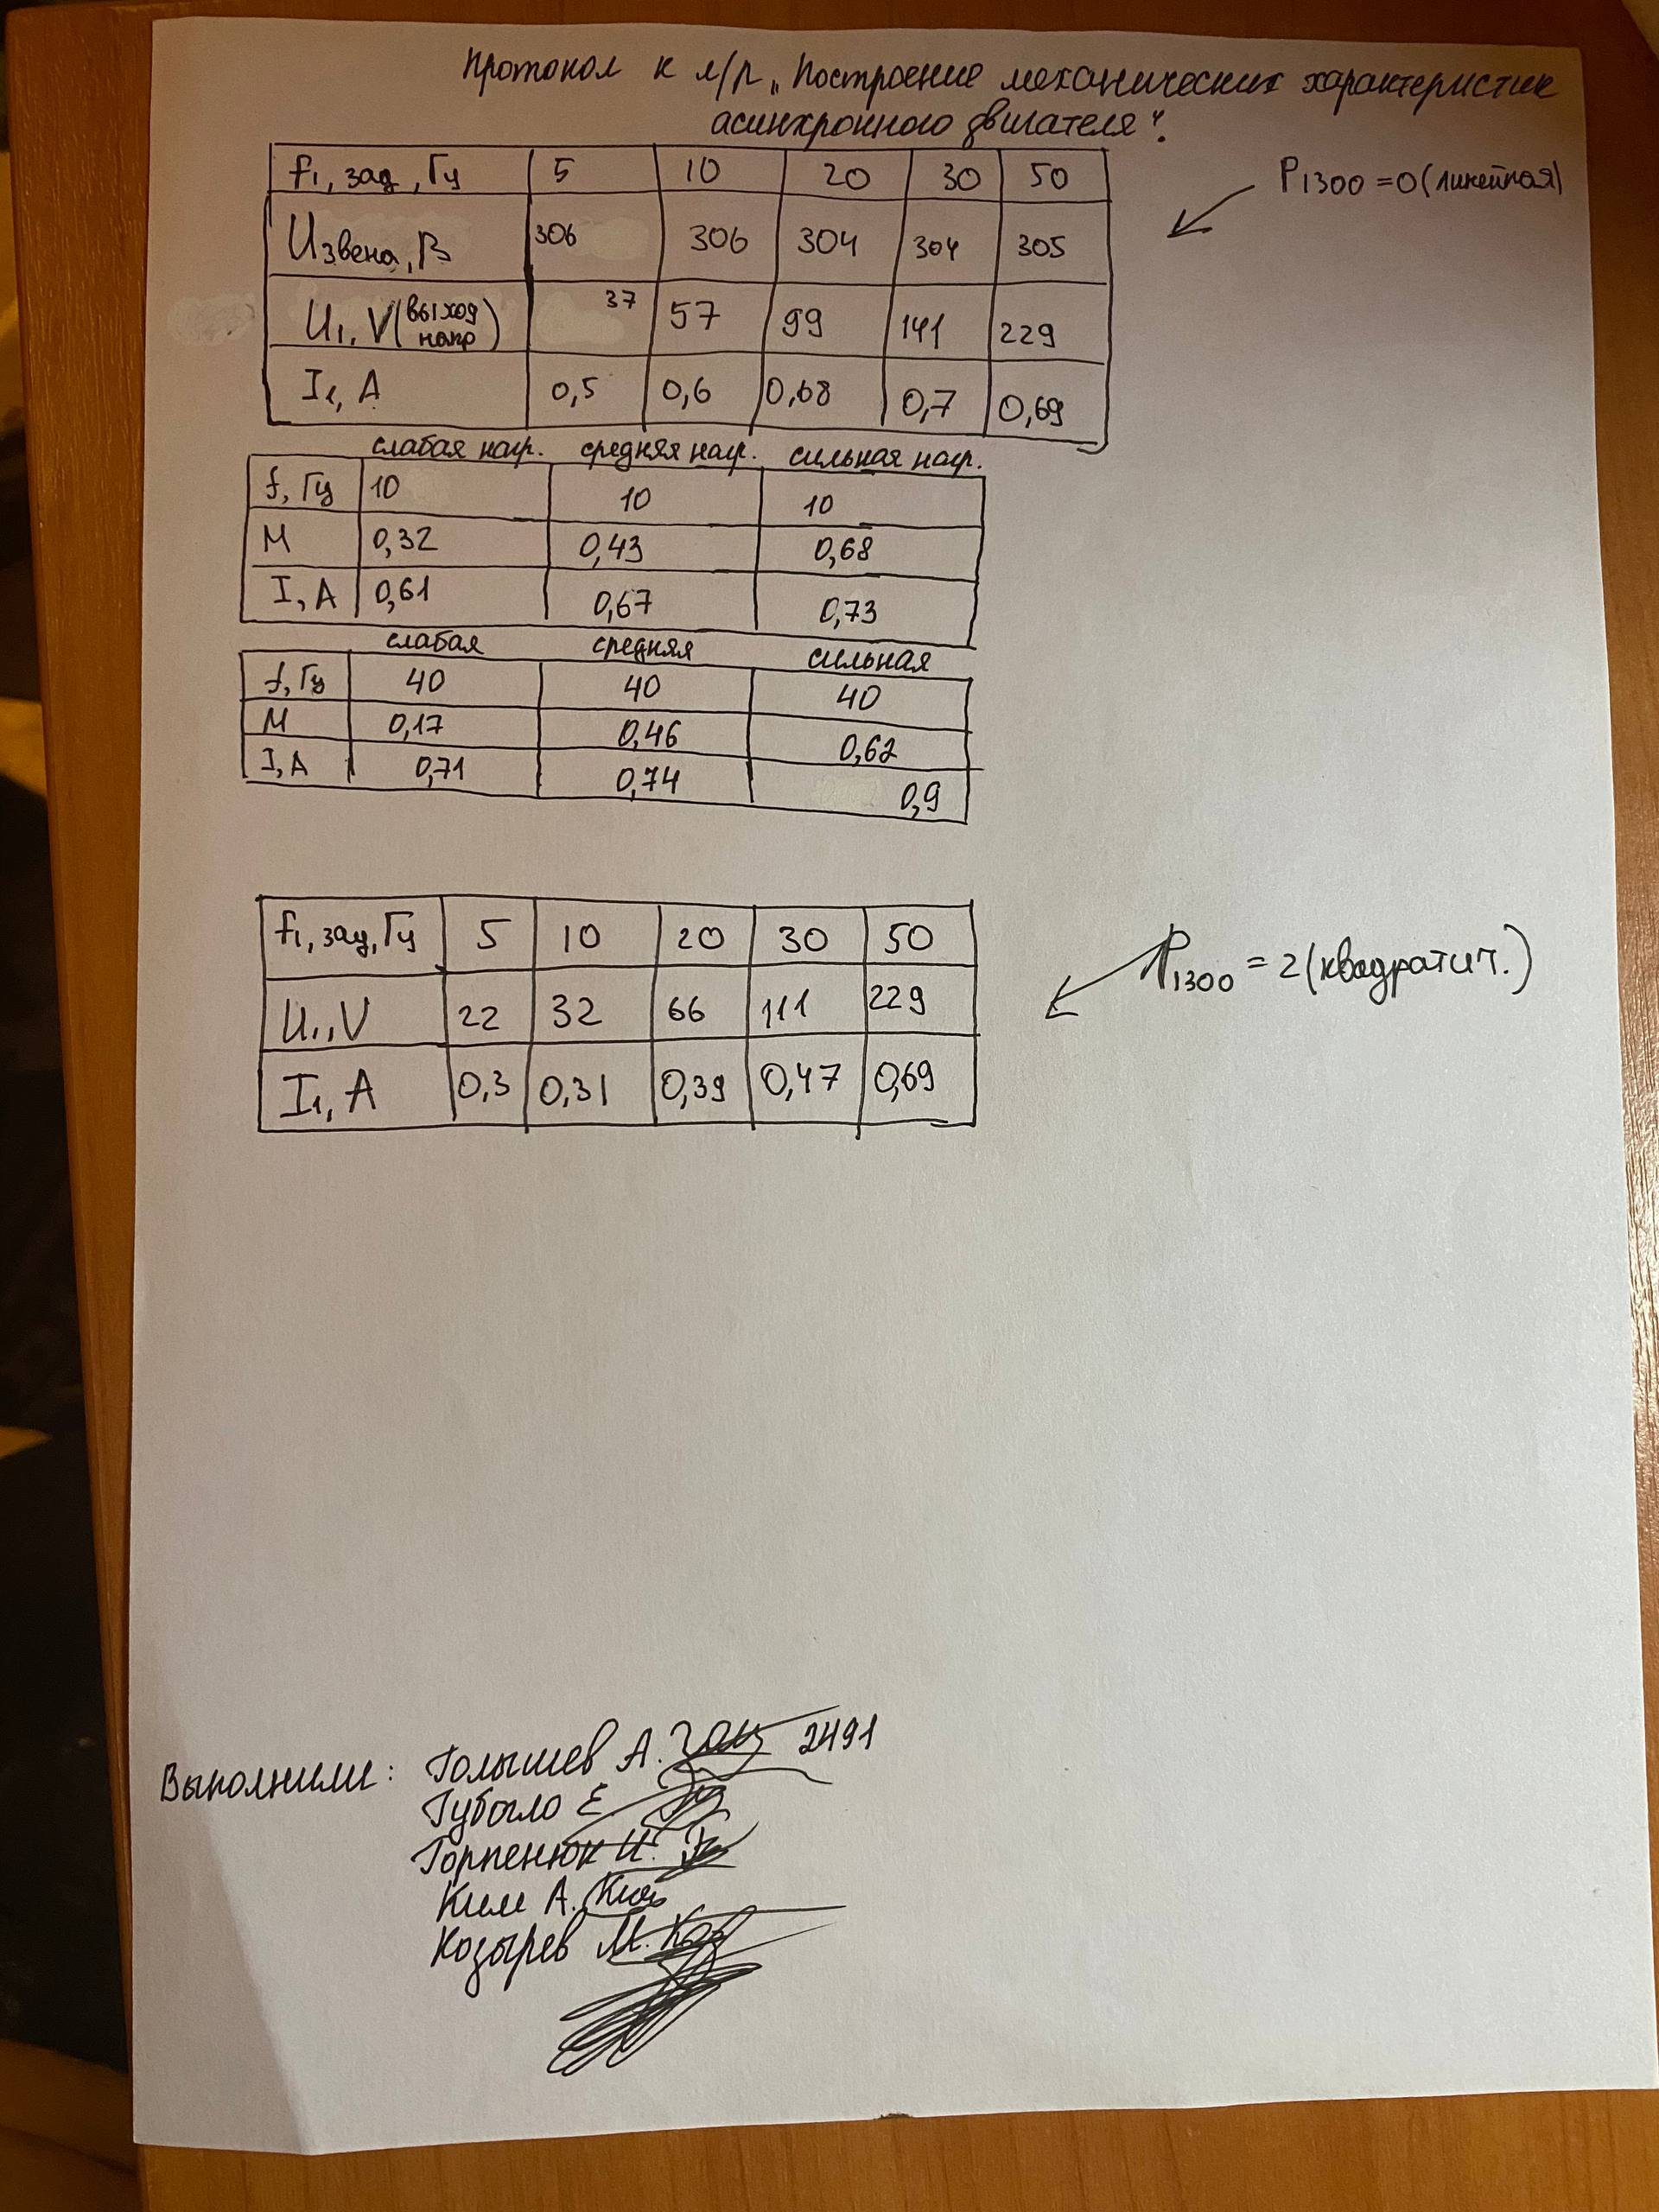 Протокол к л/р „Построение механических характеристик
асинхронного двигателя“.
f1, зад, Гц 5 10 20 30 50
P1300 = 0 (линейная)
Uзвена, В 306 306 304 304 305
U1, V (выход напр) 37 57 99 141 229
I1, A 0,5 0,6 0,68 0,7 0,69
слабая нагр. средняя нагр. сильная нагр.
f, Гц 10 10 10
M 0,32 0,43 0,68
I, A 0,61 0,67 0,73
слабая средняя сильная
f, Гц 40 40 40
M 0,17 0,46 0,62
I, A 0,71 0,74 0,9
f1, зад, Гц 5 10 20 30 50
P1300 = 2 (квадратич.)
U1, V 22 32 66 111 229
I1, A 0,3 0,31 0,39 0,47 0,69
Выполнили: Голышев А. 2491
Губыло Е.
Горпенюк И.
Ким А.
Козырев М.